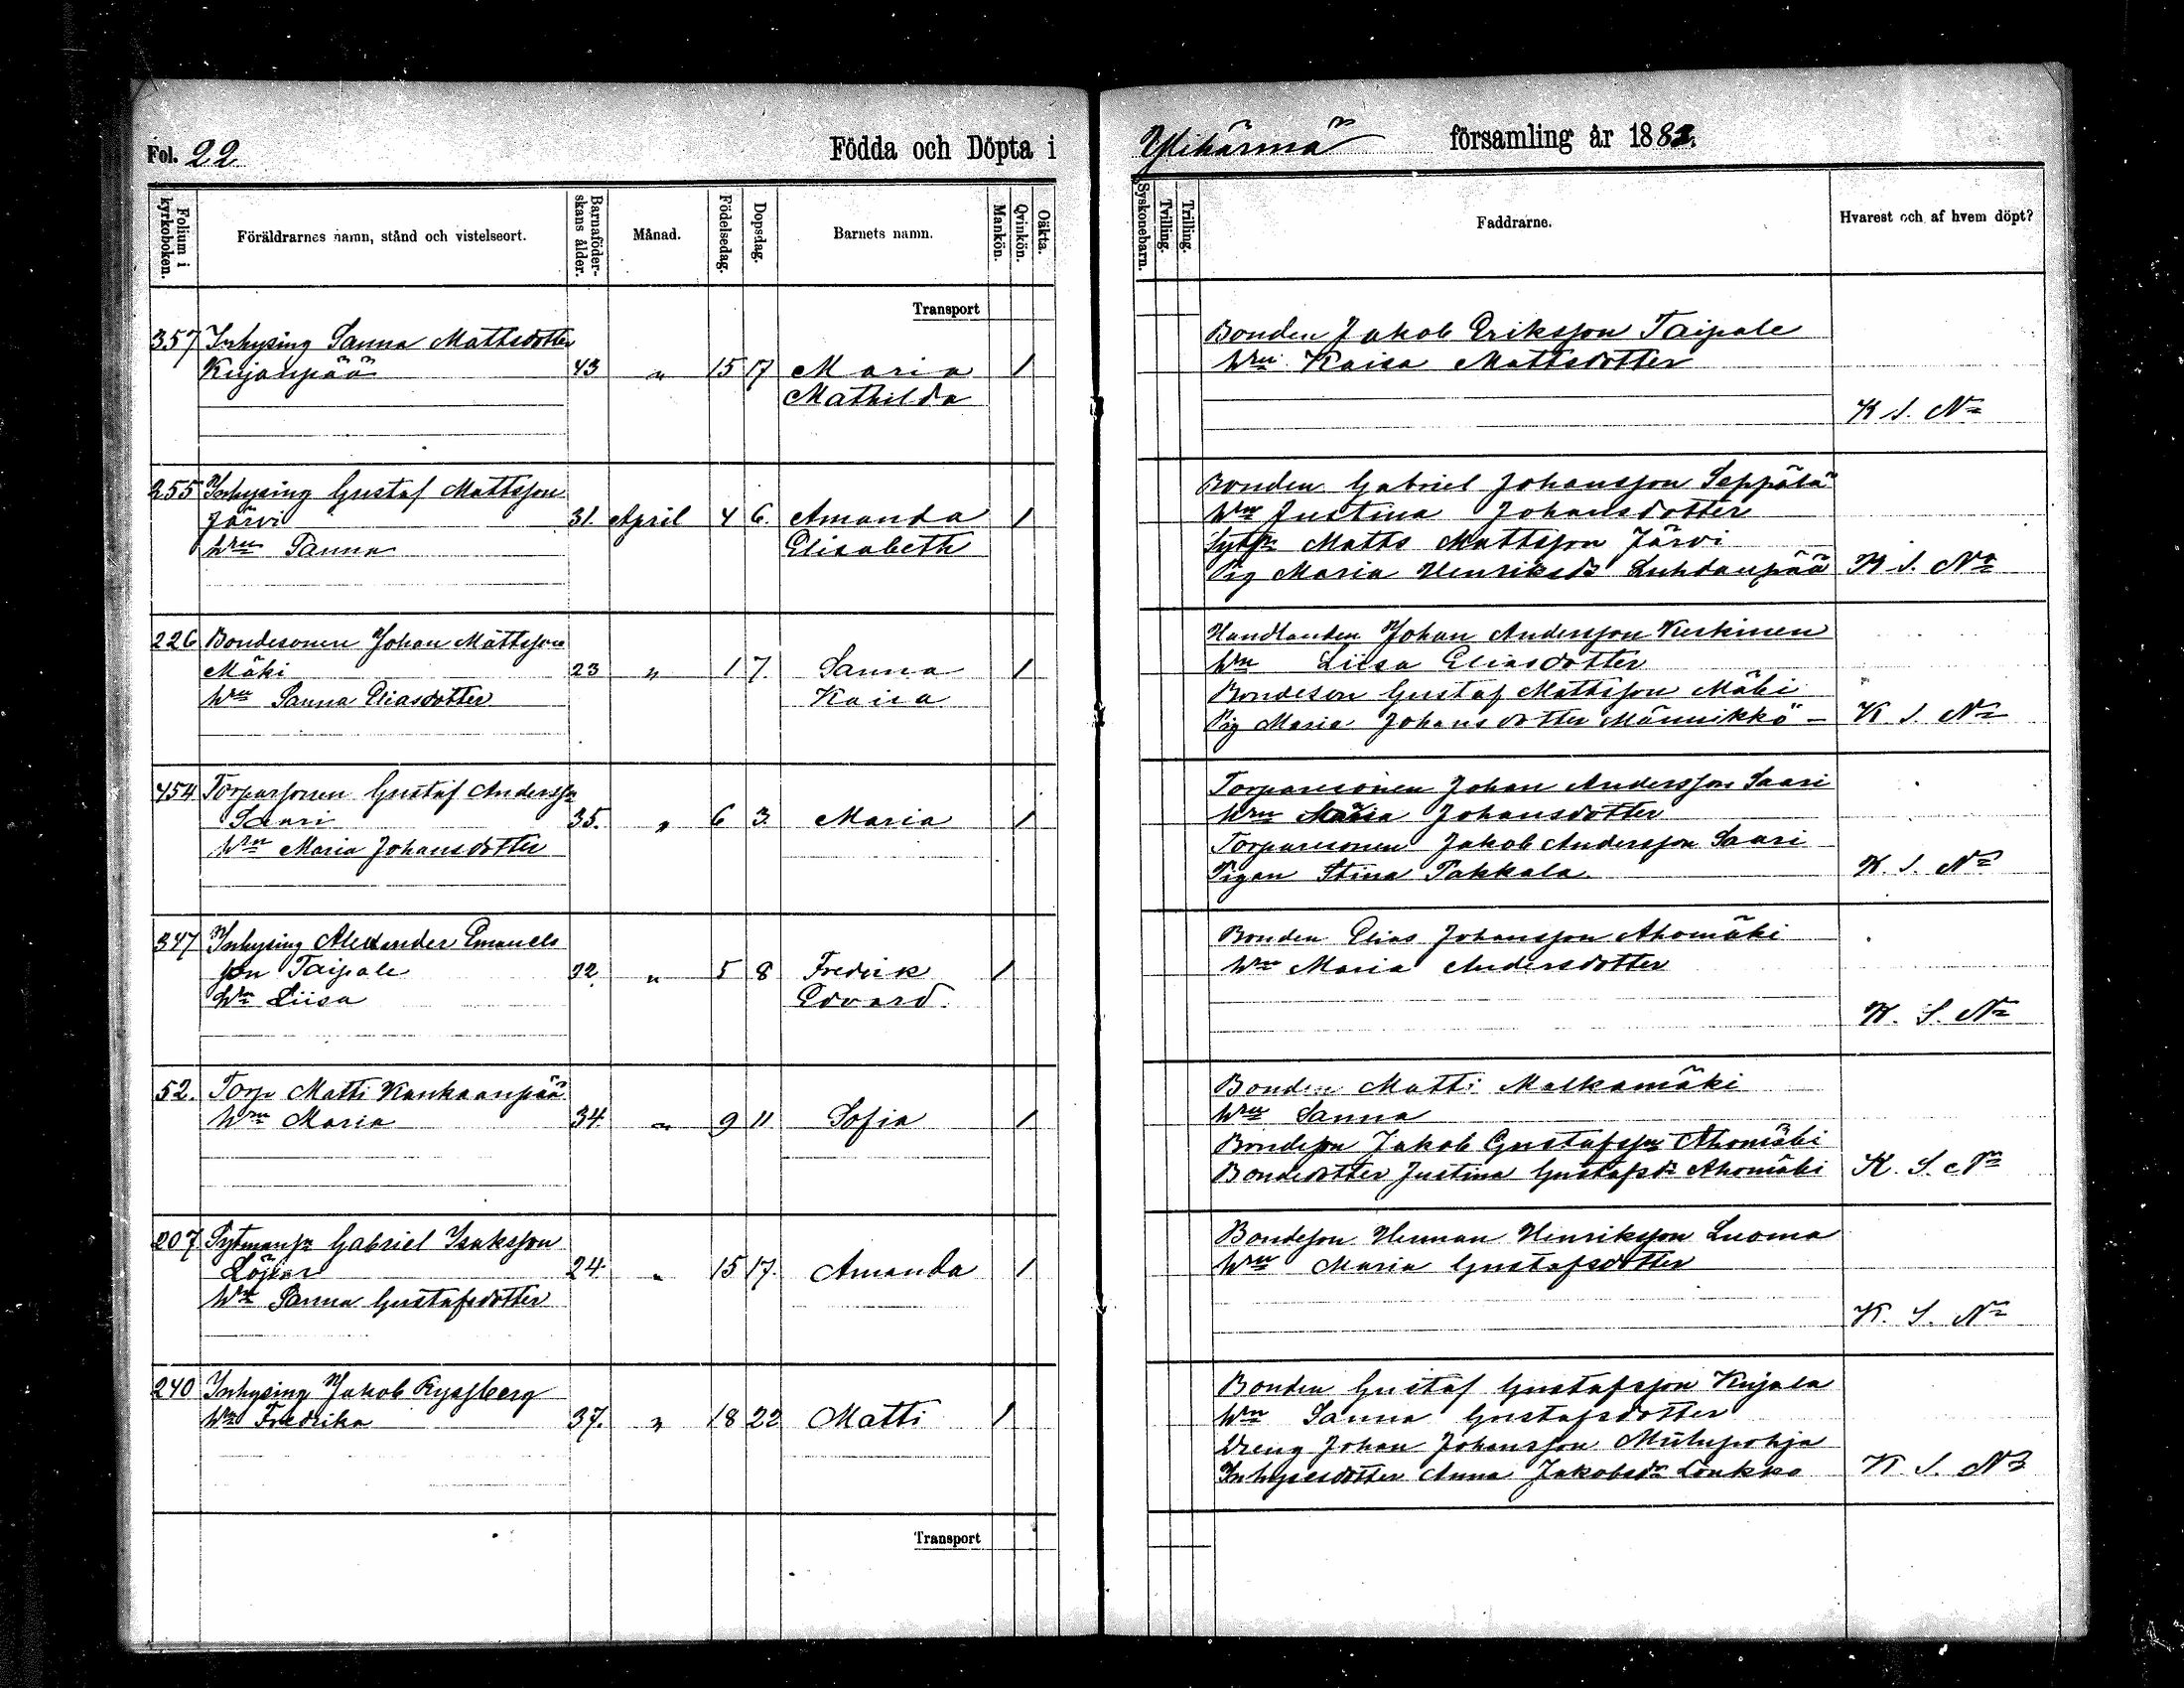 Fol. 22 Födda och Döpta i Ylihärmä församling år 1882.
Folium i kyrkoboken. Föräldrarnes namn, stånd och vistelseort. Barnaföderskans ålder. Månad. Födelsedag. Dopsdag. Barnets namn. Mankön. Qvinkön. Oäkta. Syskonebarn. Tvilling. Trilling. Faddrarne. Hvarest och af hvem döpt?
Transport
357 Inhysing Sanna Mattsdotter
Kujanpää 43 " 15 17 Maria 1
Mathilda
Bonden Jakob Eriksson Taipale
Hru Kaisa Mattsdotter
K S. Nn
255 Inhysing Gustaf Mattsson
Järvi 31. April 4 6. Amanda 1
Hru Sanna Elisabeth
Bonden Gabriel Johansson Seppälä
Hru Justina Johansdotter
Matts Mattsson Järvi
Pig Maria Henriksdr Luhdanpää K S. Nn
226 Bondesonen Johan Mattsson
Mäki 23 " 1 7. Sanna 1
Hru Sanna Eliasdotter Kaisa
Handlanden Johan Andersson Keskinen
Hru Liisa Eliasdotter
Bondeson Gustaf Mattsson Mäki
Pig Maria Johansdotter Männikkö K S. Nn
454 Torparsonen Gustaf Anderss
Saari 35. " 6 3. Maria 1
Hru Maria Johansdotter
Torparesonen Johan Andersson Saari
Hru Johansdotter
Torparesonen Jakob Andersson Saari
Pigan Stina Pakkala K. S. Nn
347 Inhysing Alexander Emanuels
son Taipale 22. " 5 8 Fredrik 1
Hru Liisa Edvard.
Bonden Elias Johansson Ahomäki
Hru Maria Andersdotter
K. S. Nn
52. Torp Matti Kankaanpää
Hru Maria 34. " 9 11 Sofia 1
Bonden Matti Malkamäki
Hru Sanna
Bondeson Jakob Gustafsson Ahomäki
Bondedotter Justina Gustafsdr Ahomäki K. S. Nn
207 Gabriel Isaksson
24. " 15 17. Amanda 1
Hru Sanna Gustafsdotter
Bondeson Herman Henriksson Luoma
Hru Maria Gustafsdotter
K. S. Nn
240 Inhysing Jakob Ryssberg
Hru Fredrika 37. " 18 22 Matti 1
Bonden Gustaf Gustafsson Kujala
Hru Sanna Gustafsdotter
Dreng Johan Johansson
Inhysesdotter Anna Jakobsdr Loukko K. S. Nn
Transport